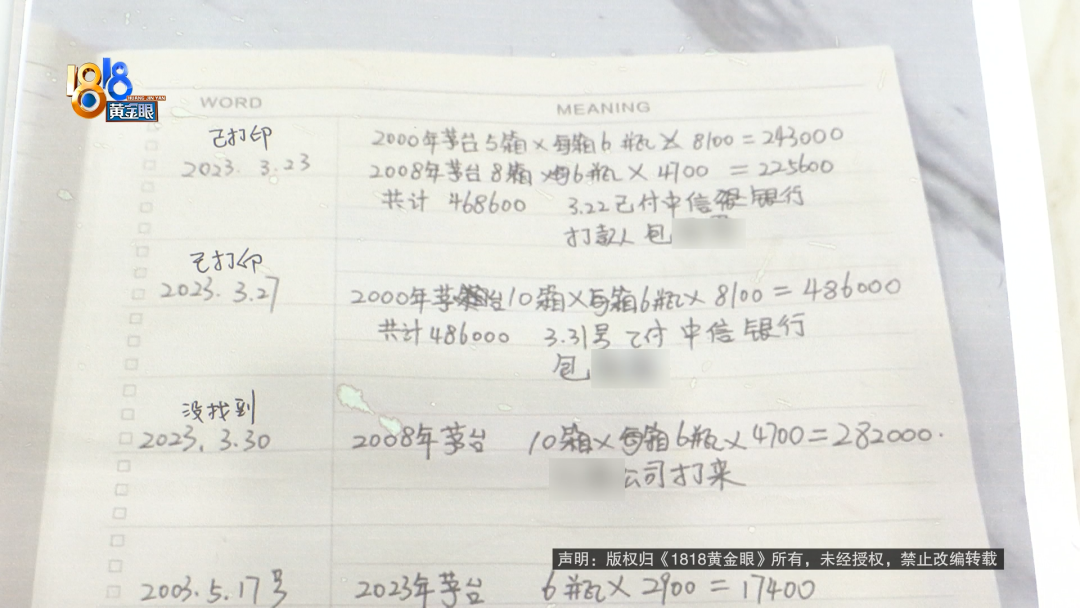 1818
HUANG JIN YAN
黄金眼
WORD
MEANING
已打印
2000年茅台5箱×每箱6瓶×8100=243000
2023. 3.23
2008年茅台8箱×每6瓶×4700=225600
共计 468600 3.22已付中信银行
打款人 包
已打印
2023. 3.27
2000年茅台10箱×每箱6瓶×8100=486000
共计486000 3.31号已付中信银行
包
没找到
2023. 3.30
2008年茅台 10箱×每箱6瓶×4700=282000.
公司打来
声明：版权归《1818黄金眼》所有，未经授权，禁止改编转载
2003.5.17号
2023年茅台 6瓶×2900=17400